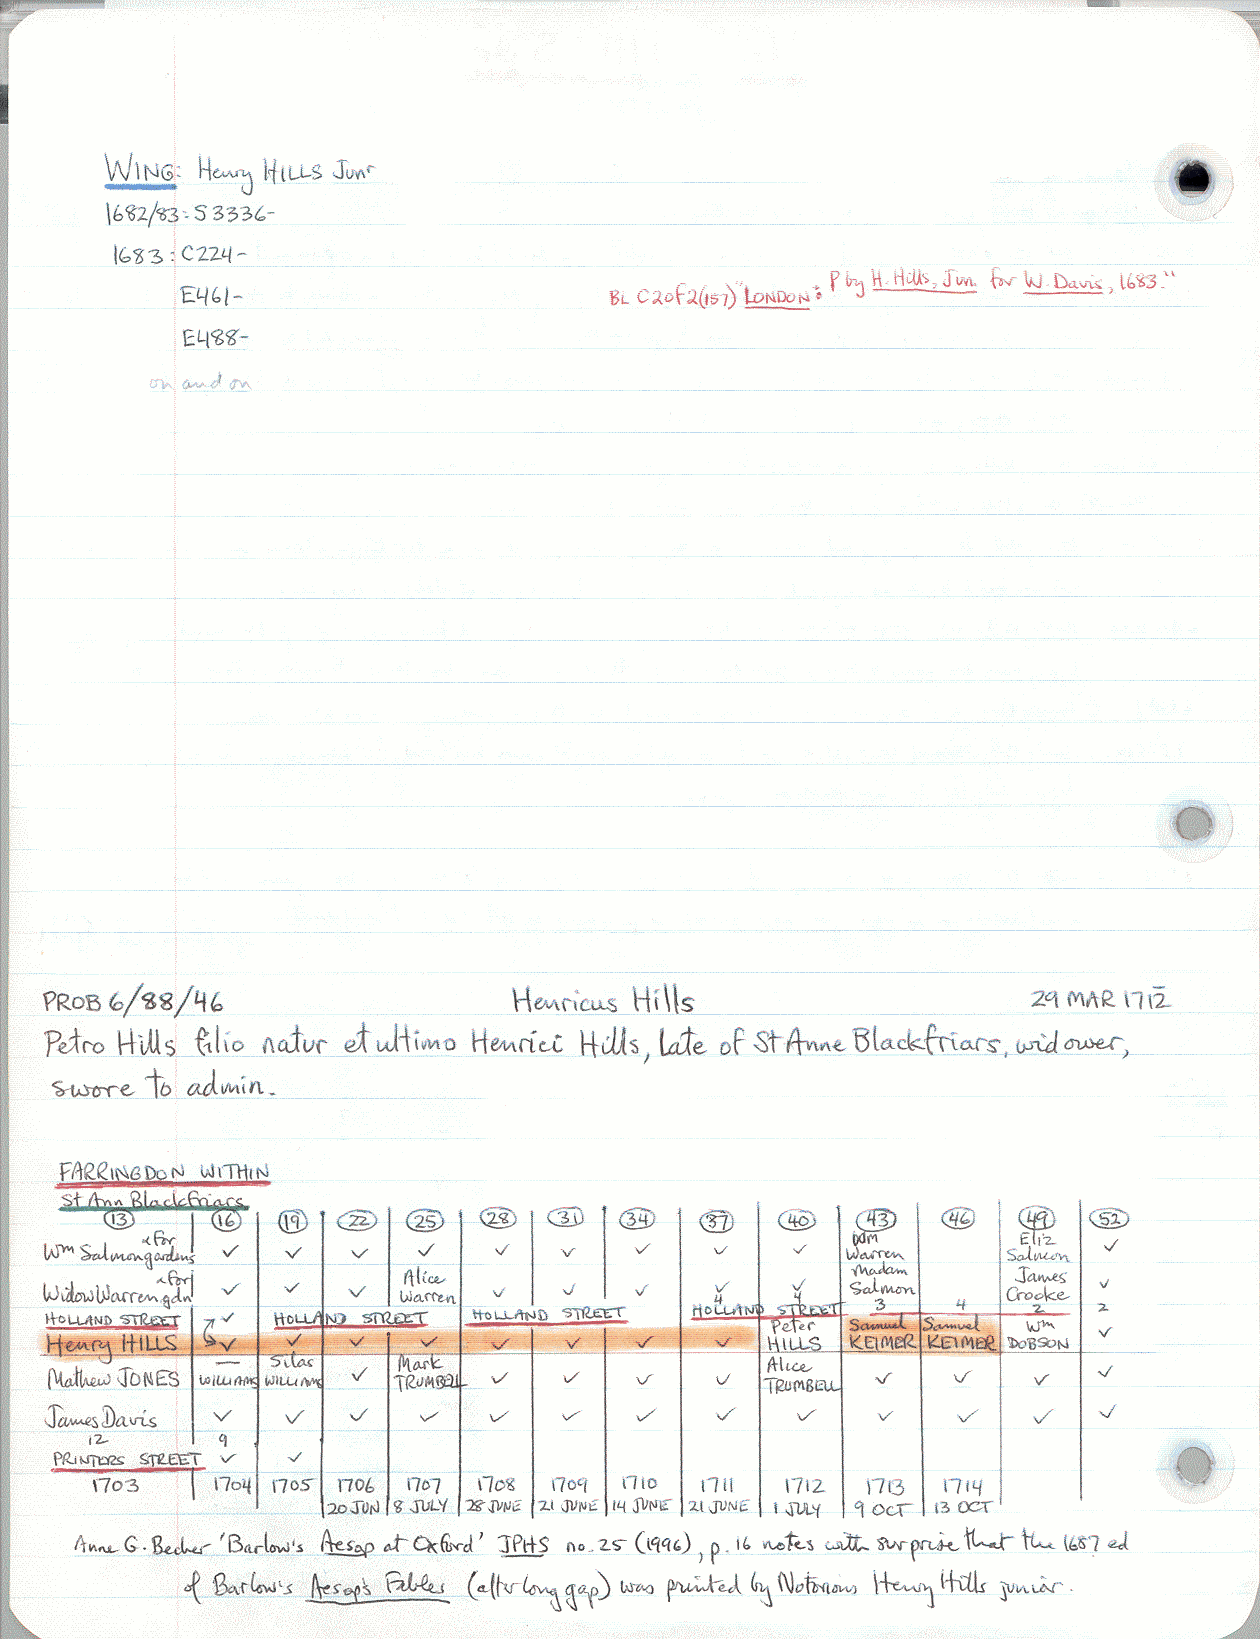 WING: Henry HILLS Junr
1682/83: S3336-
1683: C224-
E461-
BL C20f2(157) "LONDON: P by H. Hills, Jun. for W. Davis, 1683."
E488-
on and on
PROB 6/88/46 Henricus Hills 29 MAR 1712
Petro Hills filio natur et ultimo Henrici Hills, late of St Anne Blackfriars, widower,
swore to admin.
FARRINGDON WITHIN
St Ann Blackfriars
13 16 19 22 25 28 31 34 37 40 43 46 49 52
Wm Salmon & for gardens ✓ ✓ ✓ ✓ ✓ ✓ ✓ ✓ ✓ Warren Eliz Salmon ✓
Widow Warren & for gdn ✓ ✓ ✓ Alice Warren ✓ ✓ ✓ ✓ ✓ Madam Salmon James Crooke ✓
4 4 3 4 2 2
HOLLAND STREET ✓ HOLLAND STREET HOLLAND STREET HOLLAND STREET
Henry HILLS ✓ ✓ ✓ ✓ ✓ ✓ ✓ ✓ Peter HILLS Samuel KEIMER Samuel KEIMER Wm DOBSON ✓
Mathew JONES — WILLIAMS Silas WILLIAMS ✓ Mark TRUMBELL ✓ ✓ ✓ ✓ Alice TRUMBELL ✓ ✓ ✓ ✓
James Davis ✓ ✓ ✓ ✓ ✓ ✓ ✓ ✓ ✓ ✓ ✓ ✓ ✓
12 9
PRINTERS STREET ✓ ✓
1703 1704 1705 1706 1707 1708 1709 1710 1711 1712 1713 1714
20 JUN 8 JULY 28 JUNE 21 JUNE 14 JUNE 21 JUNE 1 JULY 9 OCT 13 OCT
Anne G. Becher 'Barlow's Aesop at Oxford' JPHS no. 25 (1996), p. 16 notes with surprise that the 1687 ed
of Barlow's Aesop's Fables (after long gap) was printed by Notorious Henry Hills junior.